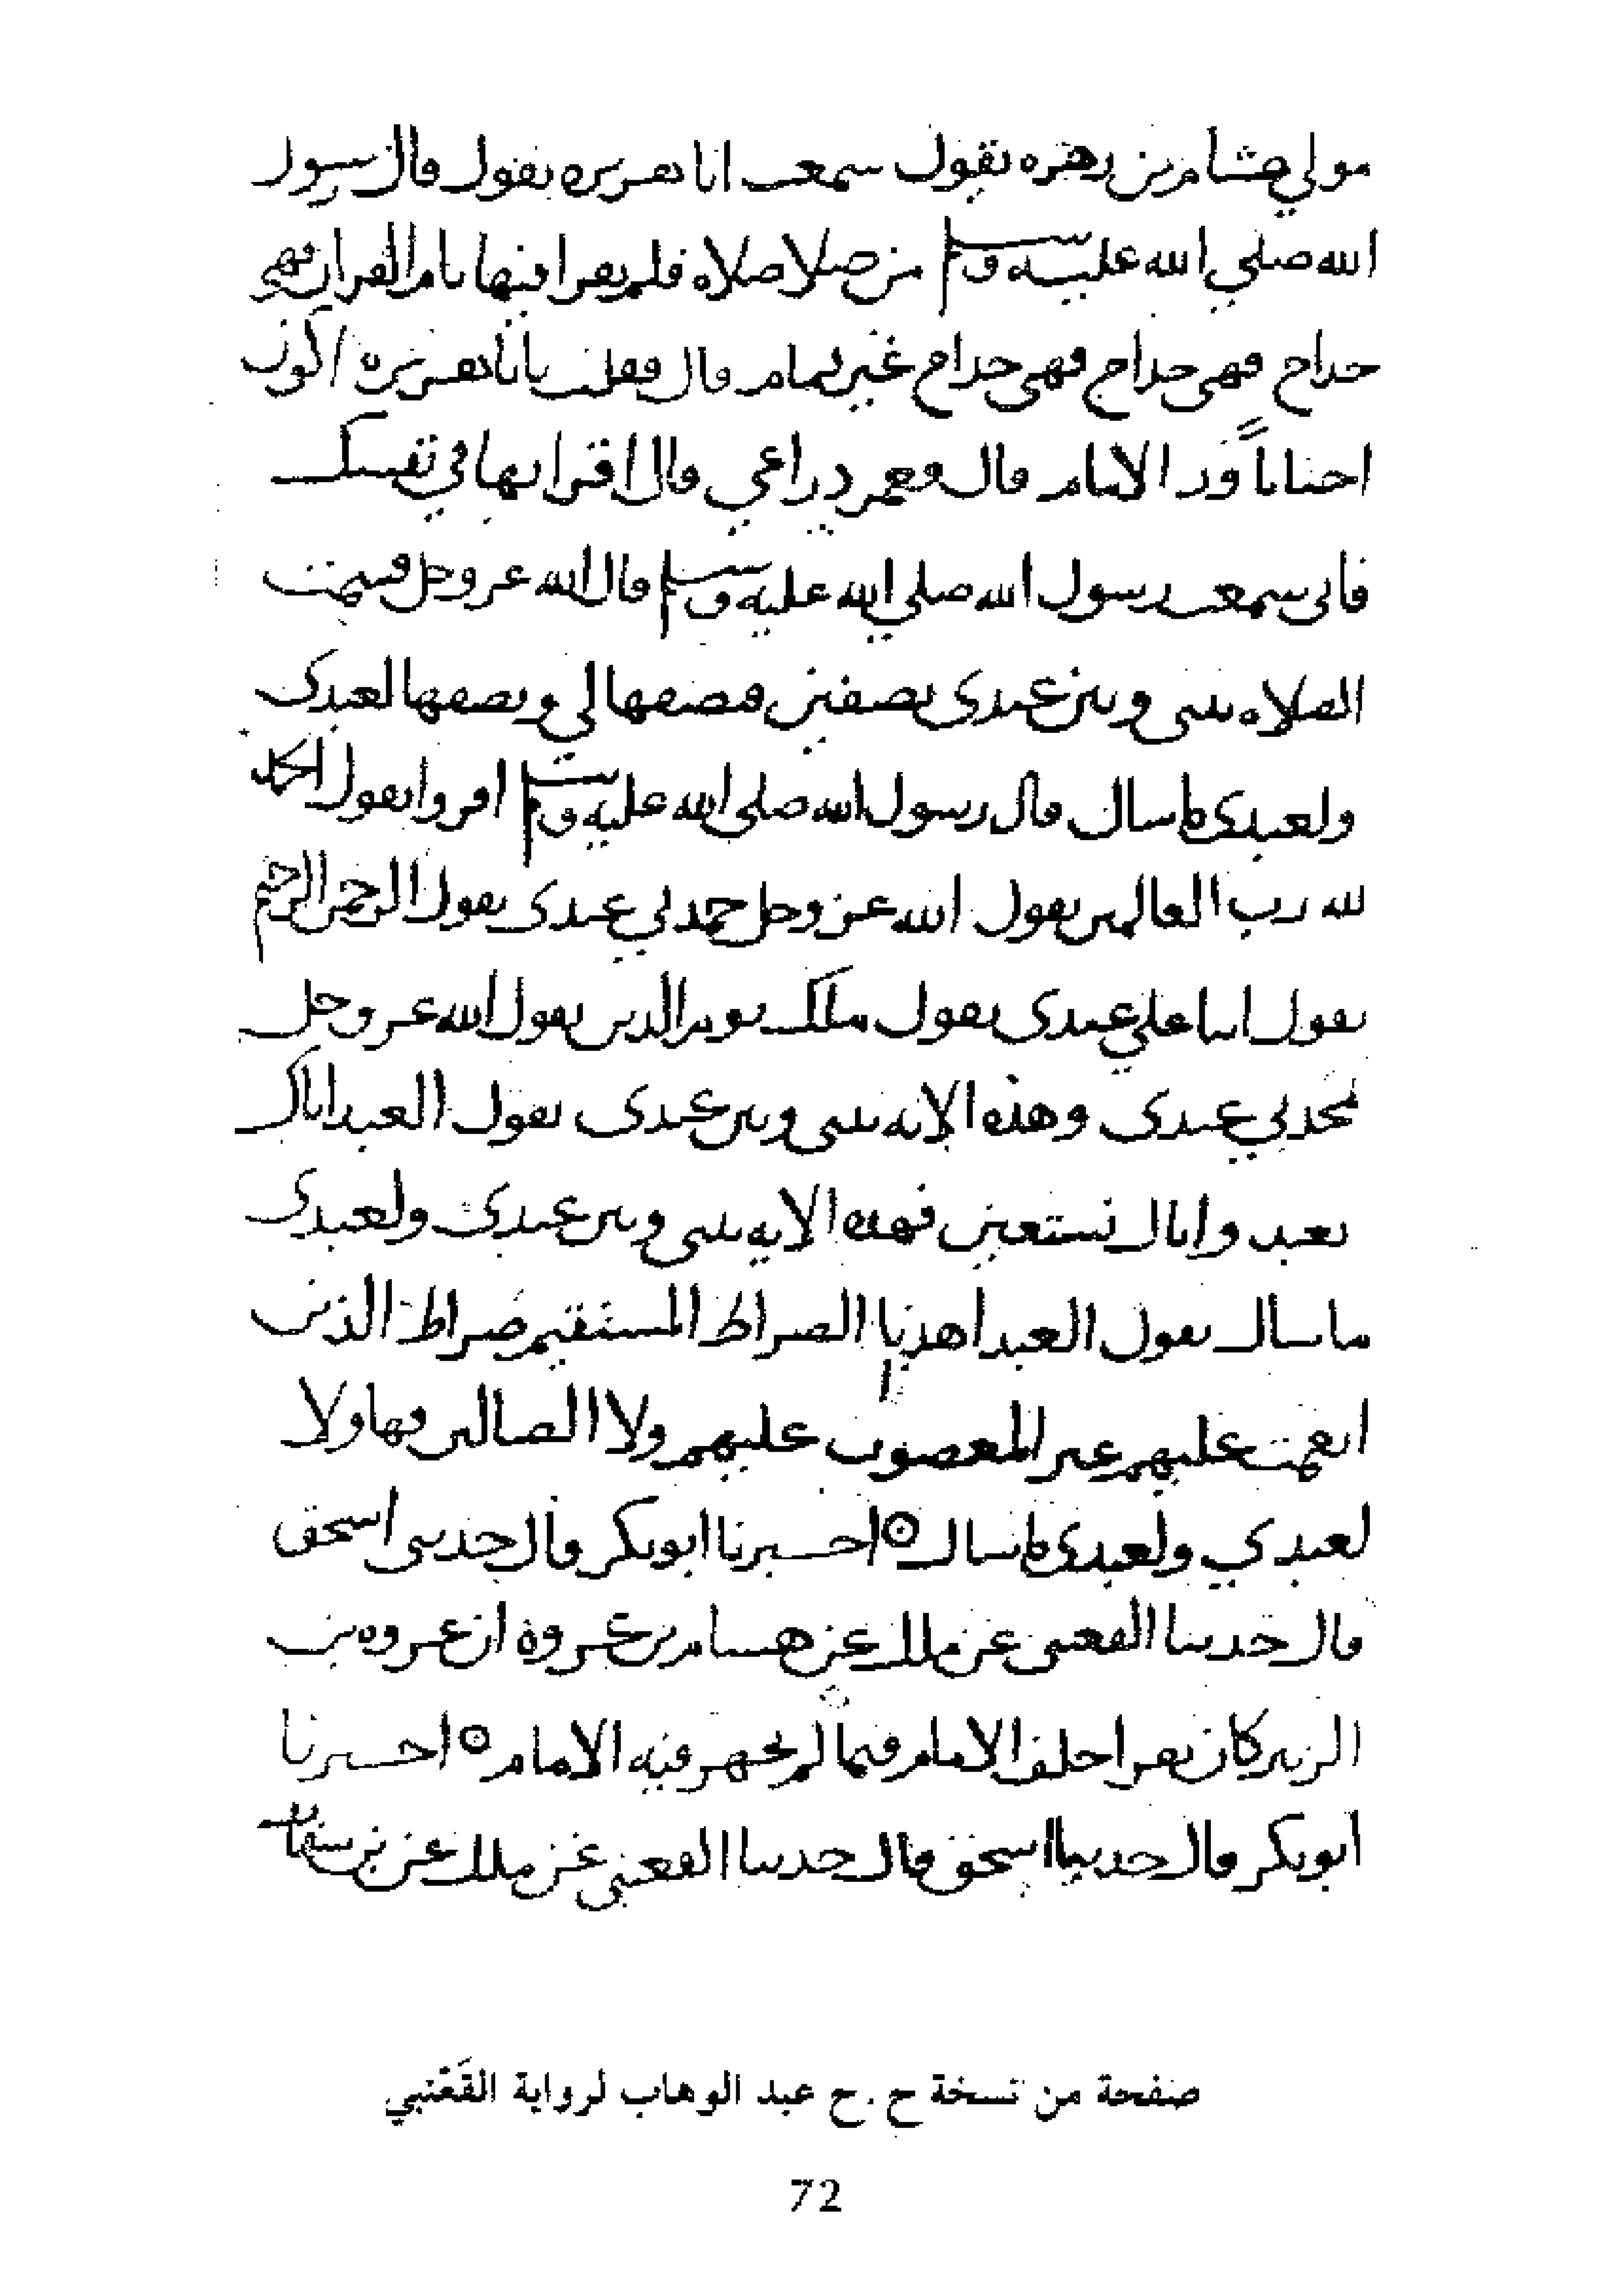 مولي هشام بن زهره يقول سمعت ابا هريره يقول قال رسول
الله صلي الله عليه وسلم من صلا صلاه فلم يقرا فيها بام القران فهي
خداج فهي خداج فهي خداج غير تمام قال فقلت يابا هريره اكون
احيانا ورا الامام قال فغمز ذراعي قال اقرا بها في نفسك
فاني سمعت رسول الله صلي الله عليه وسلم قال الله عز وجل قسمت
الصلاه بيني وبين عبدي نصفين فنصفها لي ونصفها لعبدي
ولعبدي ما سال قال رسول الله صلي الله عليه وسلم اقروا يقول الحمد
لله رب العالمين يقول الله عز وجل حمدني عبدي يقول الرحمن الرحيم
يقول اثنا علي عبدي يقول ملك يوم الدين يقول الله عز وجل
مجدني عبدي وهذه الايه بيني وبين عبدي يقول العبد اياك
نعبد واياك نستعين فهذه الايه بيني وبين عبدي ولعبدي
ما سال يقول العبد اهدنا الصراط المستقيم صراط الذين
انعمت عليهم غير المغضوب عليهم ولا الضالين فهاولا
لعبدي ولعبدي ما سال ⊙ اخبرنا ابو بكر قال حدثني اسحق
قال حدثنا القعنبي عن ملك عن هشام بن عروة ان عروه بن
الزبير كان يقرا خلف الامام فيما لم يجهر فيه الامام ⊙ اخبرنا
ابو بكر قال حدثنا اسحق قال حدثنا القعنبي عن ملك عن بن شهاب
صفحة من نسخة ح . ح عبد الوهاب لرواية القَعْنبي
72